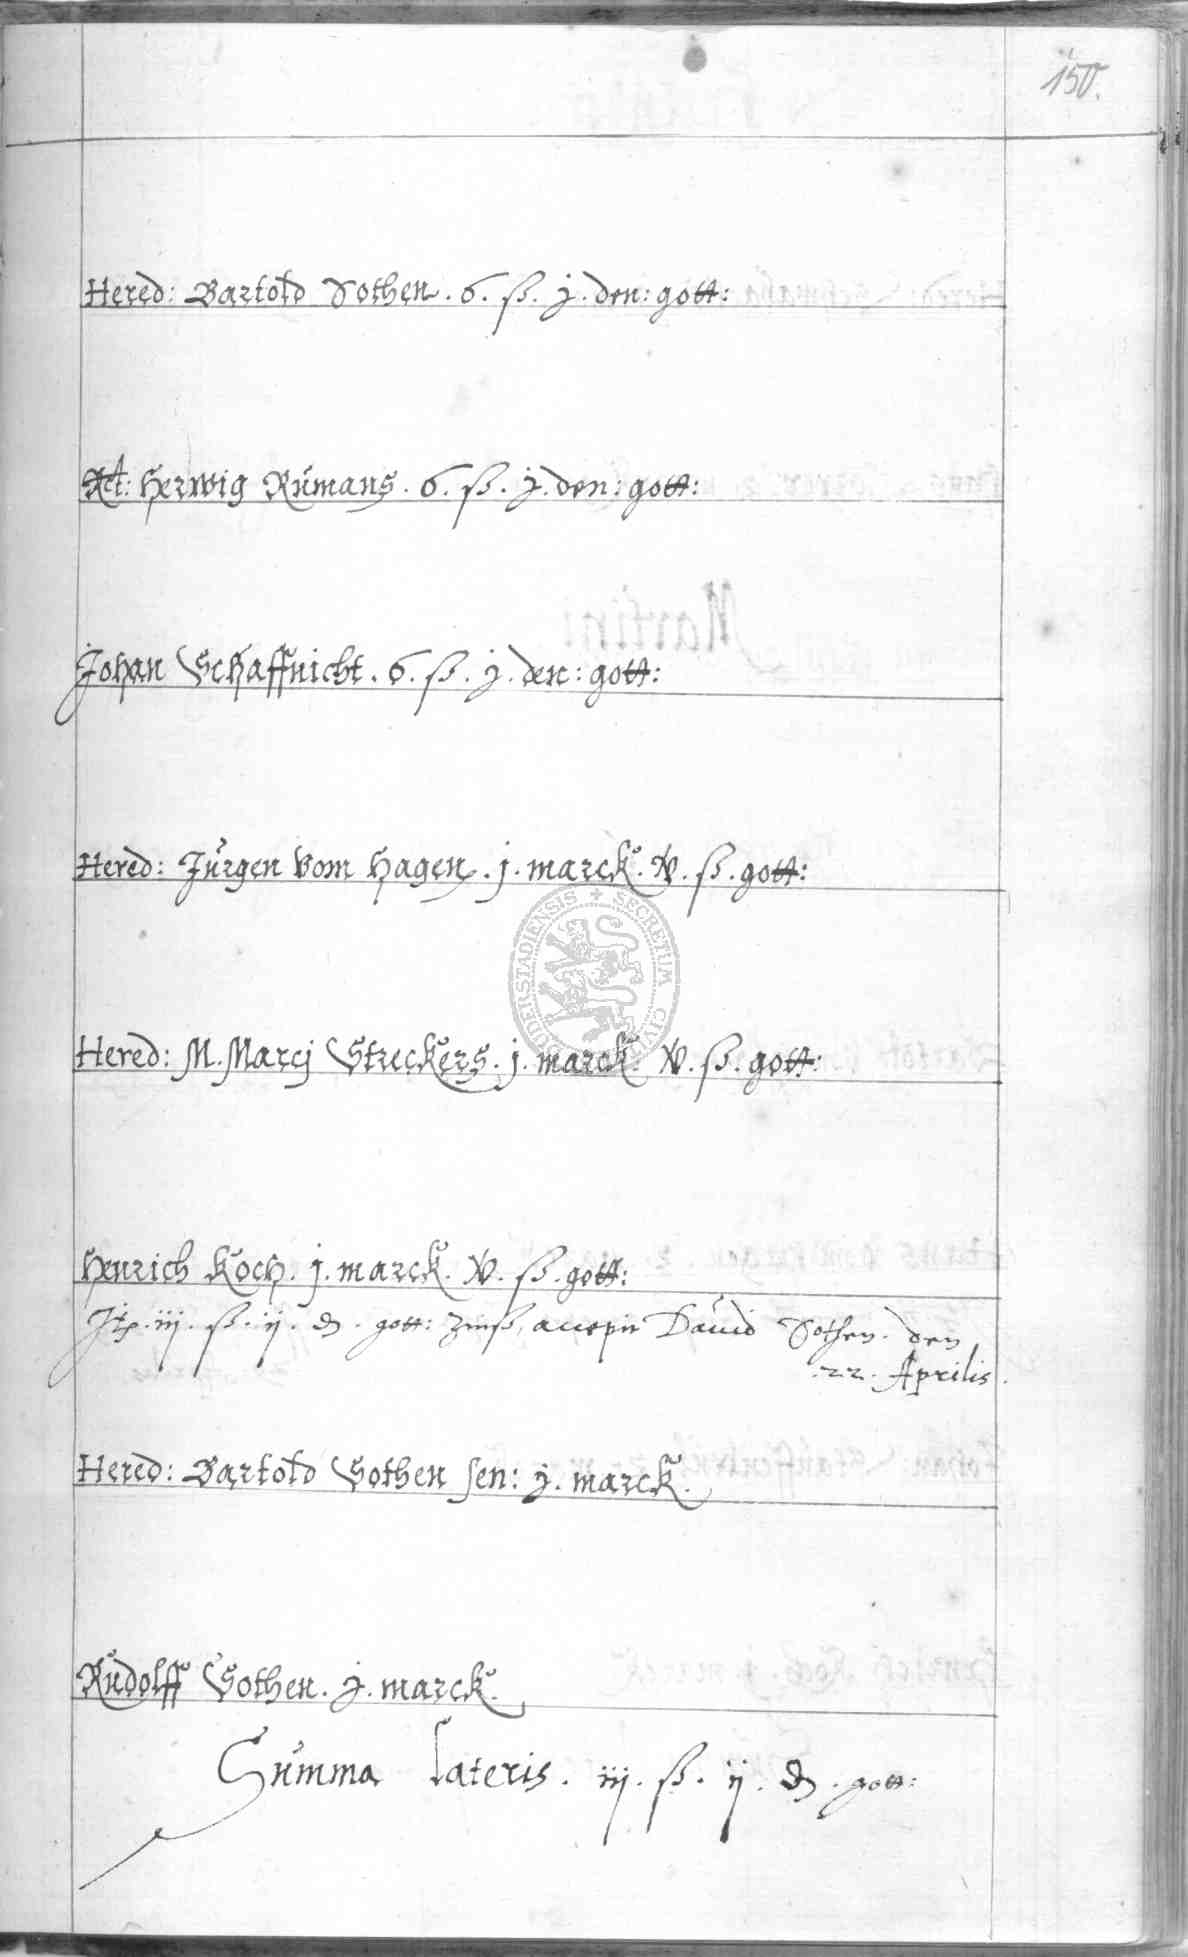 150.
Hered: Bartold Sothen. 6. ß. j. den: gott:
Rel: Herwig Rümans. 6. ß. j. den: gott:
Johan Schaffnicht. 6. ß. j. den: gott:
Hered: Jürgen vom Hagen. j. marck. V. ß. gott:
SECRETUM CIVIT DUDERSTADIENSIS
Hered: M. Marcj Streckers. j. marck. V. ß. gott:
Henrich Koch. j. marck. V. ß. gott:
iij. ß. ij. d. gott: Zinß, accepit David Sothen. den
22. Aprilis.
Hered: Bartold Sothen sen: j. marck.
Rüdolff Sothen. j. marck.
Sümma Lateris. iij. ß. ij. d. gott: